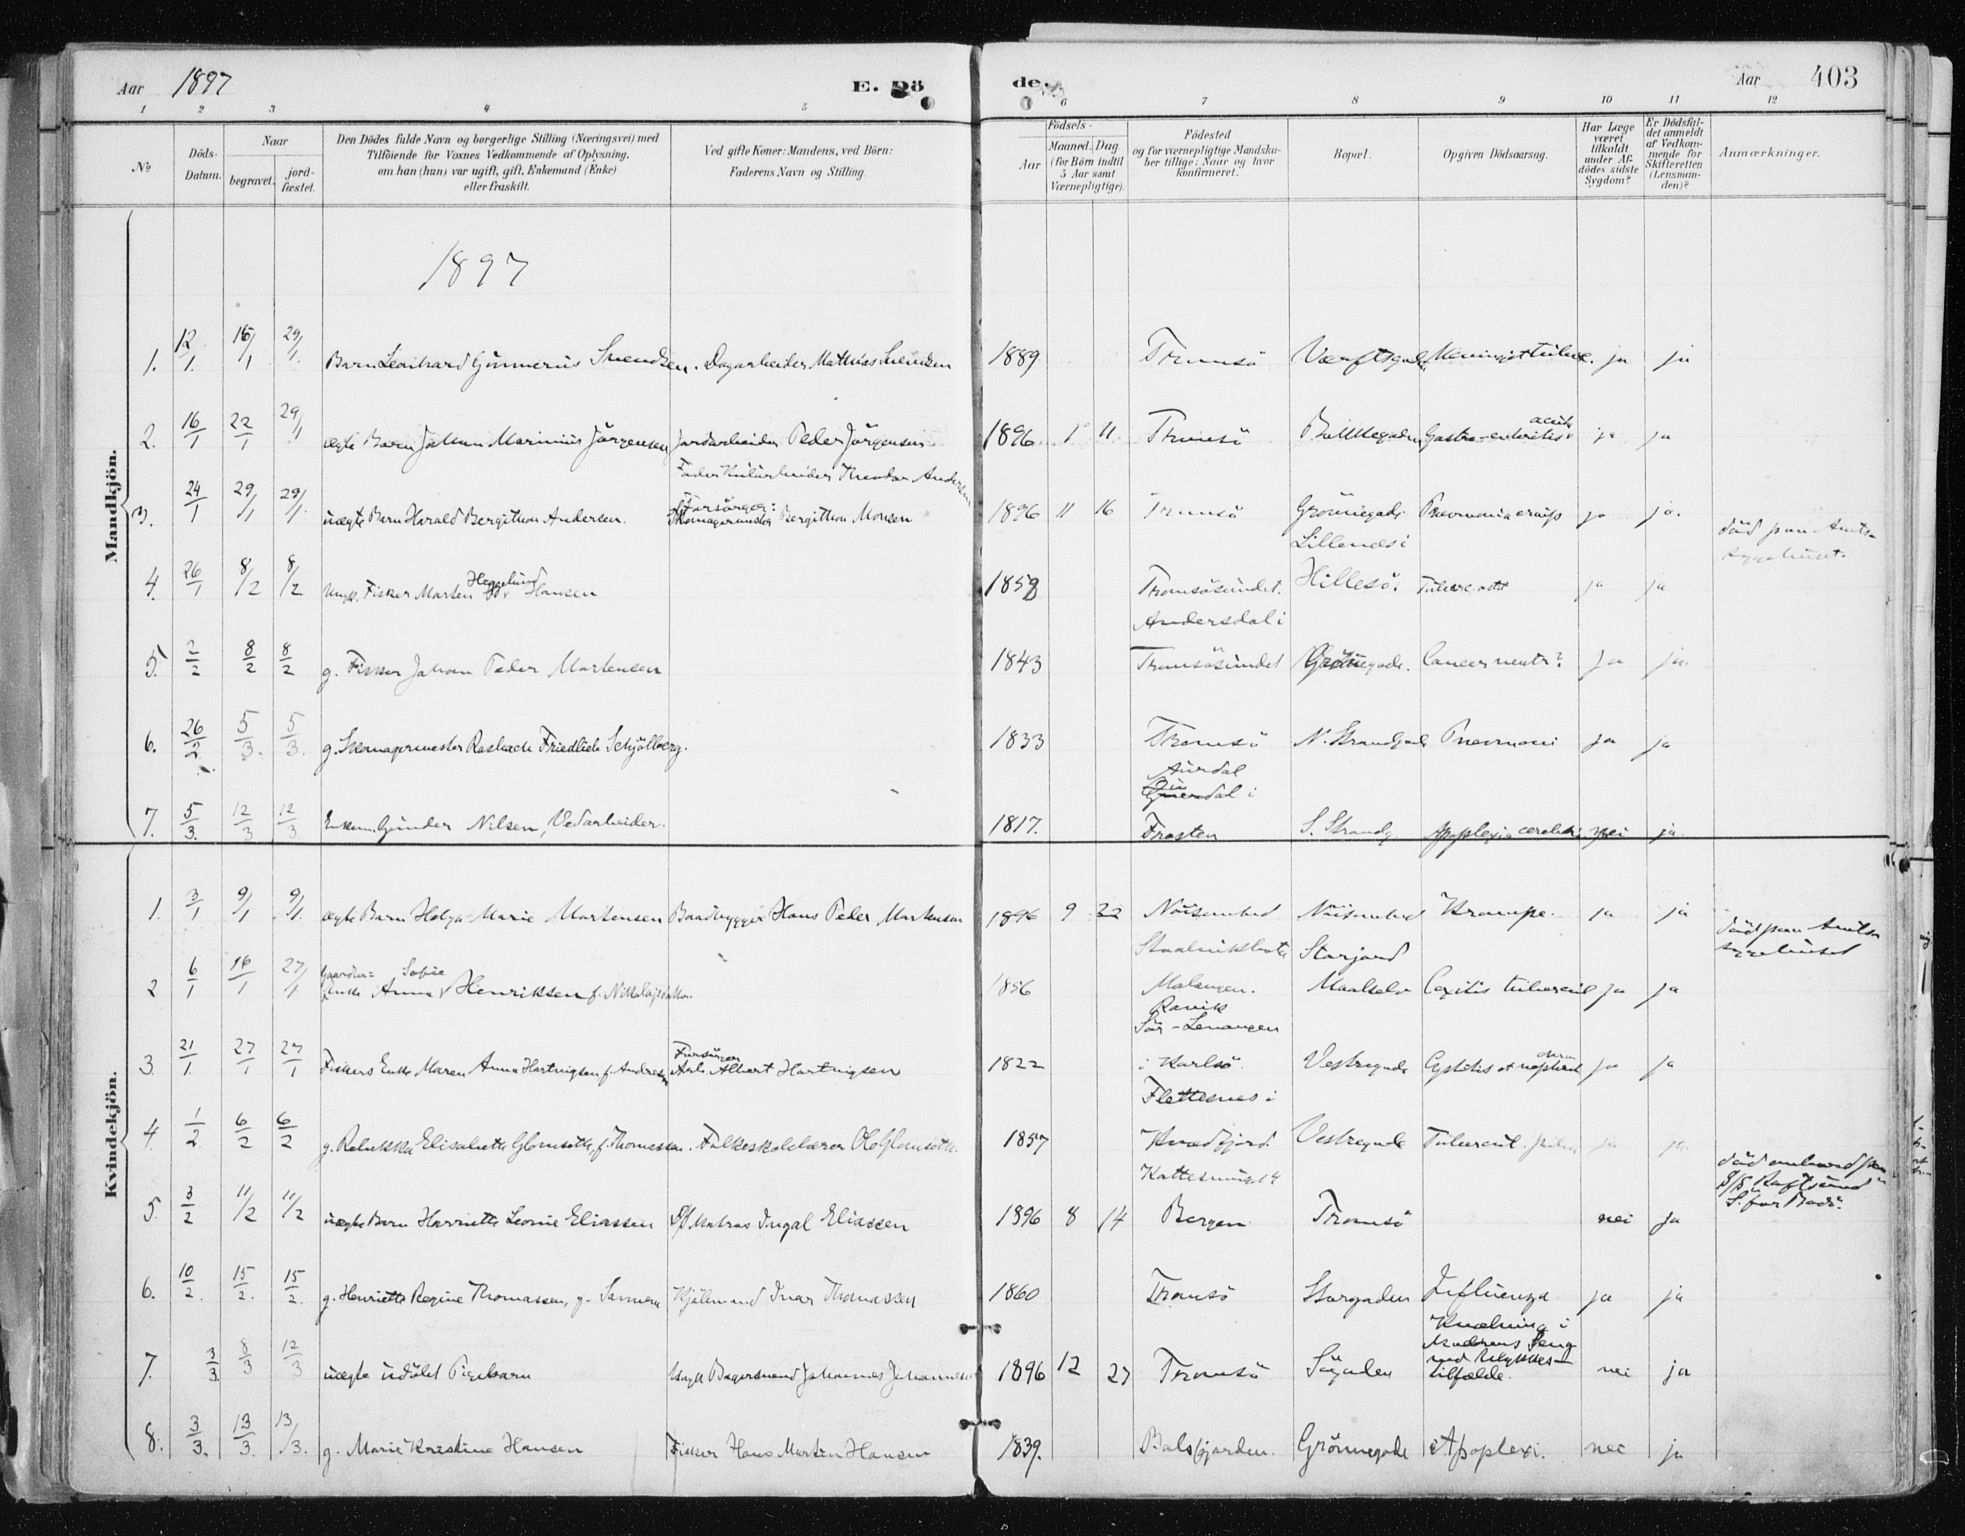 Aar 1897 E. Dö de. Aar 403
1 2 3 4 5 6 7 8 9 10 11 12
No
Döds-Datum.
Naar
begravet.
jordfæstet.
Den Dödes fulde Navn og borgerlige Stilling (Næringsvei) med
Tilföiende for Voxnes Vedkommende af Oplysning,
om han (hun) var ugift, gift, Enkemand (Enke)
eller fraskilt.
Ved gifte Koner: Mandens, ved Börn:
Faderens Navn og Stilling.
Födsels-
Aar
Maaned. Dag
(for Börn indtil
5 Aar samt
Værnepligtige).
Födested
og for værnepligtige Mandska-
ber tillige: Naar og hvor
konfirmeret.
Bopæl.
Opgiven Dödsaarsag.
Har Læge
været
tilkaldt
under Af-
dödes sidste
Sygdom?
Er Dödsfal-
det anmeldt
af Vedkom-
mende for
Skifteretten
(Lensman-
den)?
Anmærkninger.
1897
Mandkjön.
1. 12/1 16/1 29/1 Barn Leonhard Gunnerius Svendsen. Dagarbeider Mathias Svendsen 1889 Tromsö Værftsgad. ja ja
2. 16/1 22/1 29/1 ægte Barn Johan Marinius Jörgensen Jordarbeider Peder Jörgensen 1896 1 11 Tromsö Gastro-enteritis acut. ja ja
Fader Andersen
Forsörger:
3. 24/1 29/1 29/1 uægte Barn Harald Bergithon Andersen. Skomagermester Bergithon Monsen 1896 11 16 Tromsö Grönnegade Pneumonia crup ja ja.
Lillenes i död paa Amts-
sygehuset.
4. 26/1 8/2 8/2 Ungk. Fisker Morten Heggelund Hansen 1858 Tromsösundet. Hillesö. ja ja
Andersdal i
5. 2/2 8/2 8/2 g. Fisker Johan Peder Mortensen 1843 Tromsösundet Grönnegade. Cancer ventr? ja ja.
6. 26/2 5/3. 5/3. g. Skomagermester Friedlieb Schjölberg. 1833 Tromsö N. Strandgade Pneumoni ja ja
7. 5/3. 12/3 12/3 Enkem. Gunder Nilsen, Vedarbeider. 1817. Frosten S. Strandg Apoplexia cerebri nei ja
Kvindekjön.
1. 3/1 9/1 9/1 ægte Barn Helga Marie Mortensen Baadbygger Hans Peder Mortensen 1896 9 22 Krampe. ja ja
död paa Amts
sygehuset
Storjord
2 6/1 16/1 27/1 Enke Anna Sofie Henriksen f. 1856 Malangen. Maalselv Coxitis tubercul ja ja
Ravik
Sör-Lenangen
Forsörger
3. 21/1 27/1 27/1 Fiskers Enke Maren Anna Hartvigsen f. Andresen Arb. Albert Hartvigsen 1822 i Karlsö. Vestregade Cystitis ja ja
Flettesnes i
4. 1/2. 6/2 6/2 g. Rebekka Elisabeth f. Thomassen. Folkeskolelærer Ole 1857 Kvædfjord Vestregade Tubercul. ja ja.
död ombord paa
S/S "Raftsund"
S. for Bodö.
5. 3/2 11/2 11/2 uægte Barn Harriette Leonie Eliassen Matros Ingal Eliassen 1896 8 14 Bergen Tromsö nei ja
6. 10/2. 15/2. 15/2. g. Henriette Regine Thomassen, Kjöbmand Inar Thomassen 1860 Tromsö Storgaden Influenza ja ja
Kvælning i
Moderens Seng
ved Ulykkes-
tilfælde.
7. 3/3. 8/3 12/3 uægte udöbt Pigebarn Ungk Bagersvend Johannes Johannesen 1896 12 27 Tromsö Sögaden nei ja
8. 3/3. 13/3. 13/3. g. Marie Kristine Hansen Fisker Hans Morten Hansen 1839. Balsfjorden. Grönnegade Apoplexi. nei ja